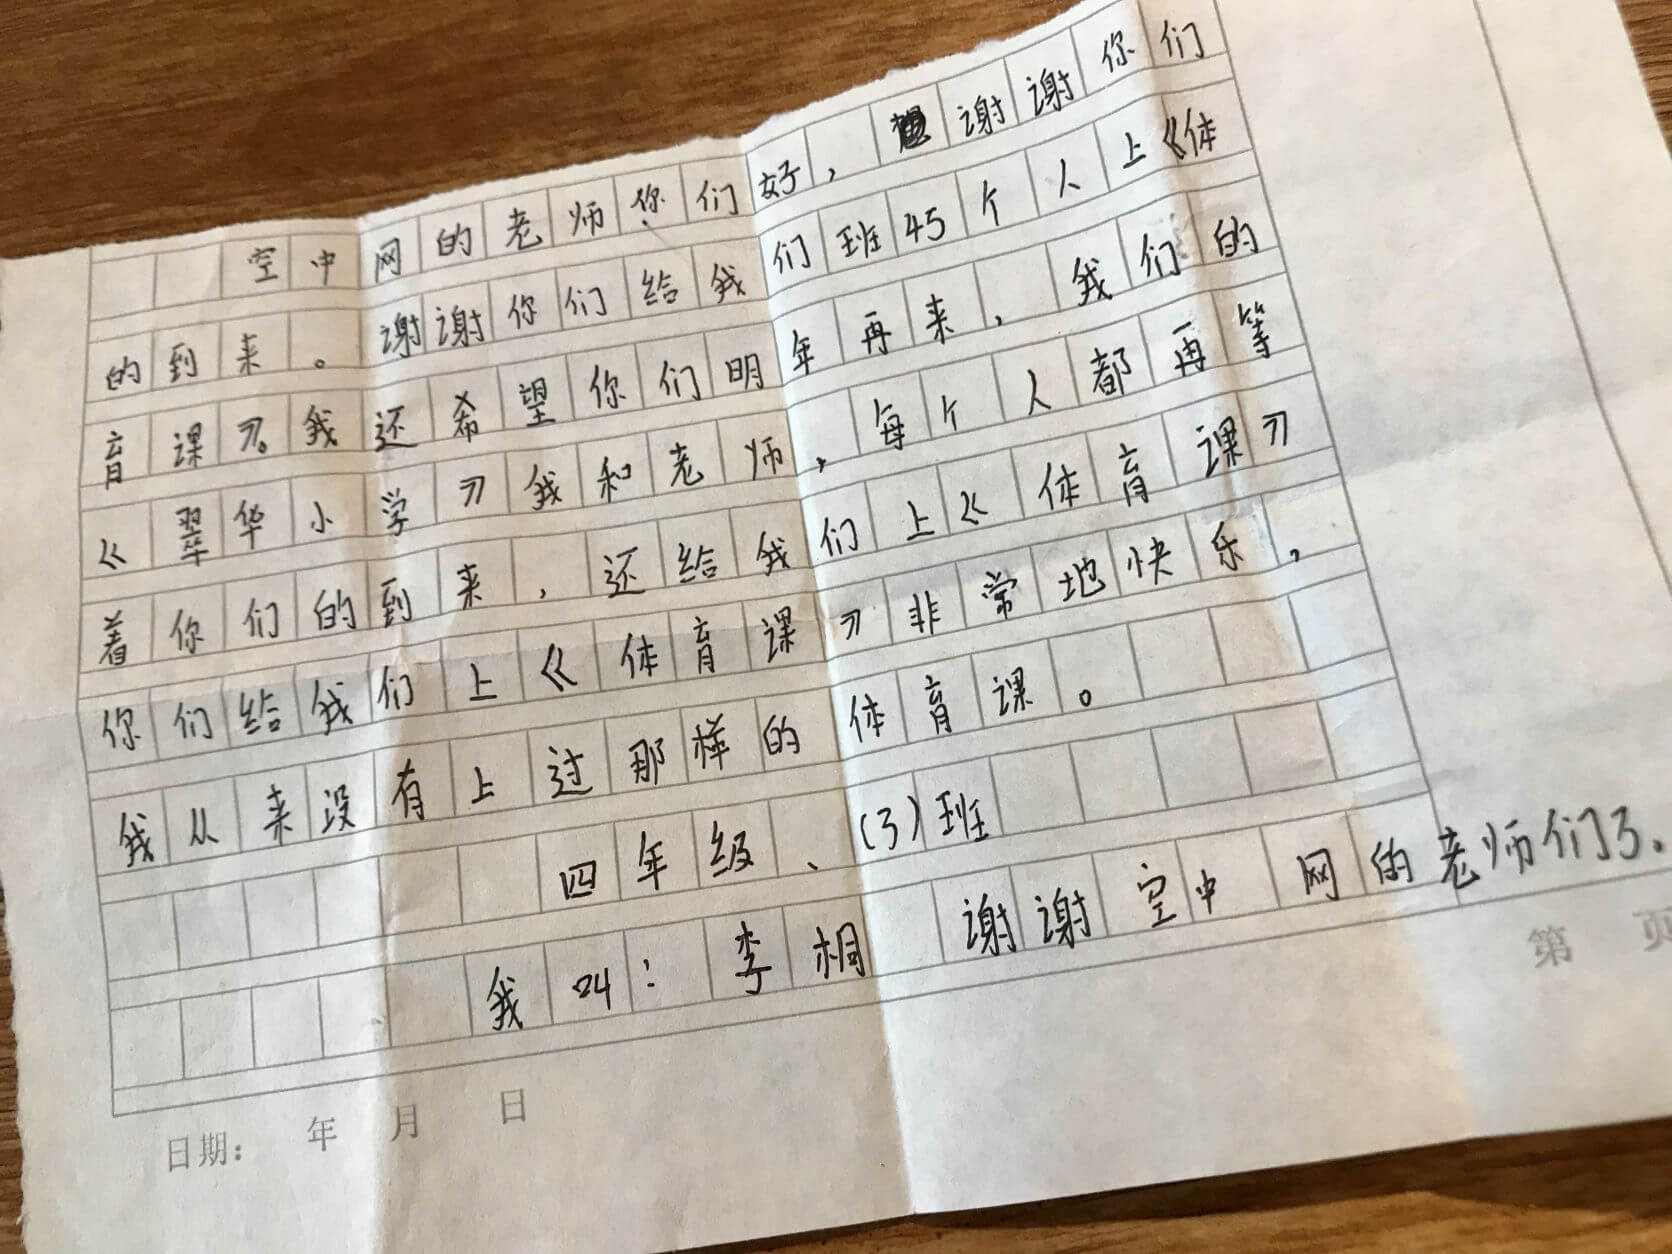 空中网的老师你们好,谢谢你们
的到来。谢谢你们给我们班45个人上《体
育课》。我还希望你们明年再来,我们的
《翠华小学》我和老师,每个人都再等
着你们的到来,还给我们上《体育课》
你们给我们上《体育课》非常地快乐,
我从来没有上过那样的体育课。
四年级、(3)班
我叫:李桐 谢谢空中网的老师们了.
第 页
日期: 年 月 日